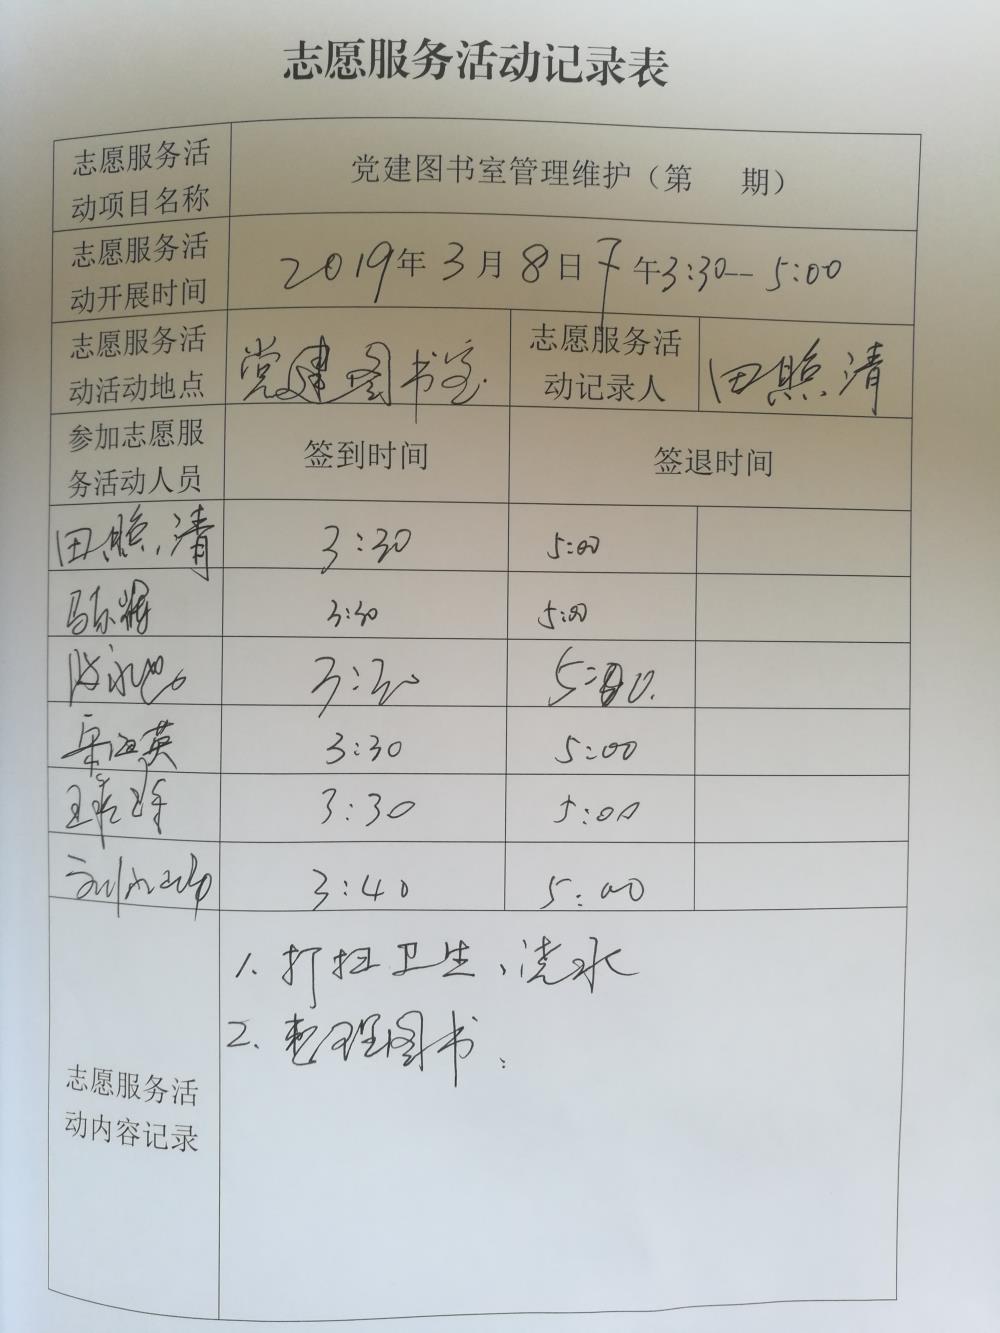 志愿服务活动记录表
志愿服务活
动项目名称
党建图书室管理维护（第 期）
志愿服务活
动开展时间
2019年3月8日下午3:30--5:00
志愿服务活
动活动地点
党建图书室.
志愿服务活
动记录人
田照清
参加志愿服
务活动人员
签到时间
签退时间
田照清 3:30 5:00
3:30 5:00
3:30 5:00.
3:30 5:00
3:30 5:00
3:40 5:00
志愿服务活
动内容记录
1.打扫卫生、浇水
2.整理图书